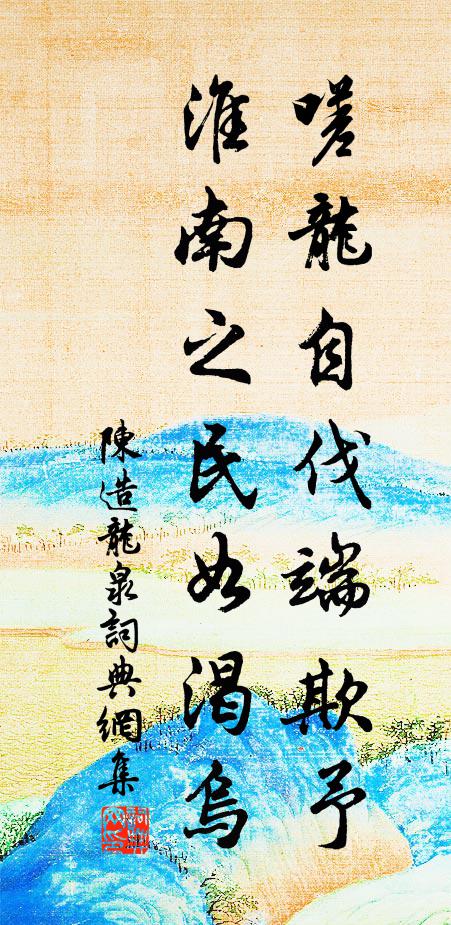 嗟龍自伐端欺予
淮南之民如渴烏
陳造龍泉詞典網集